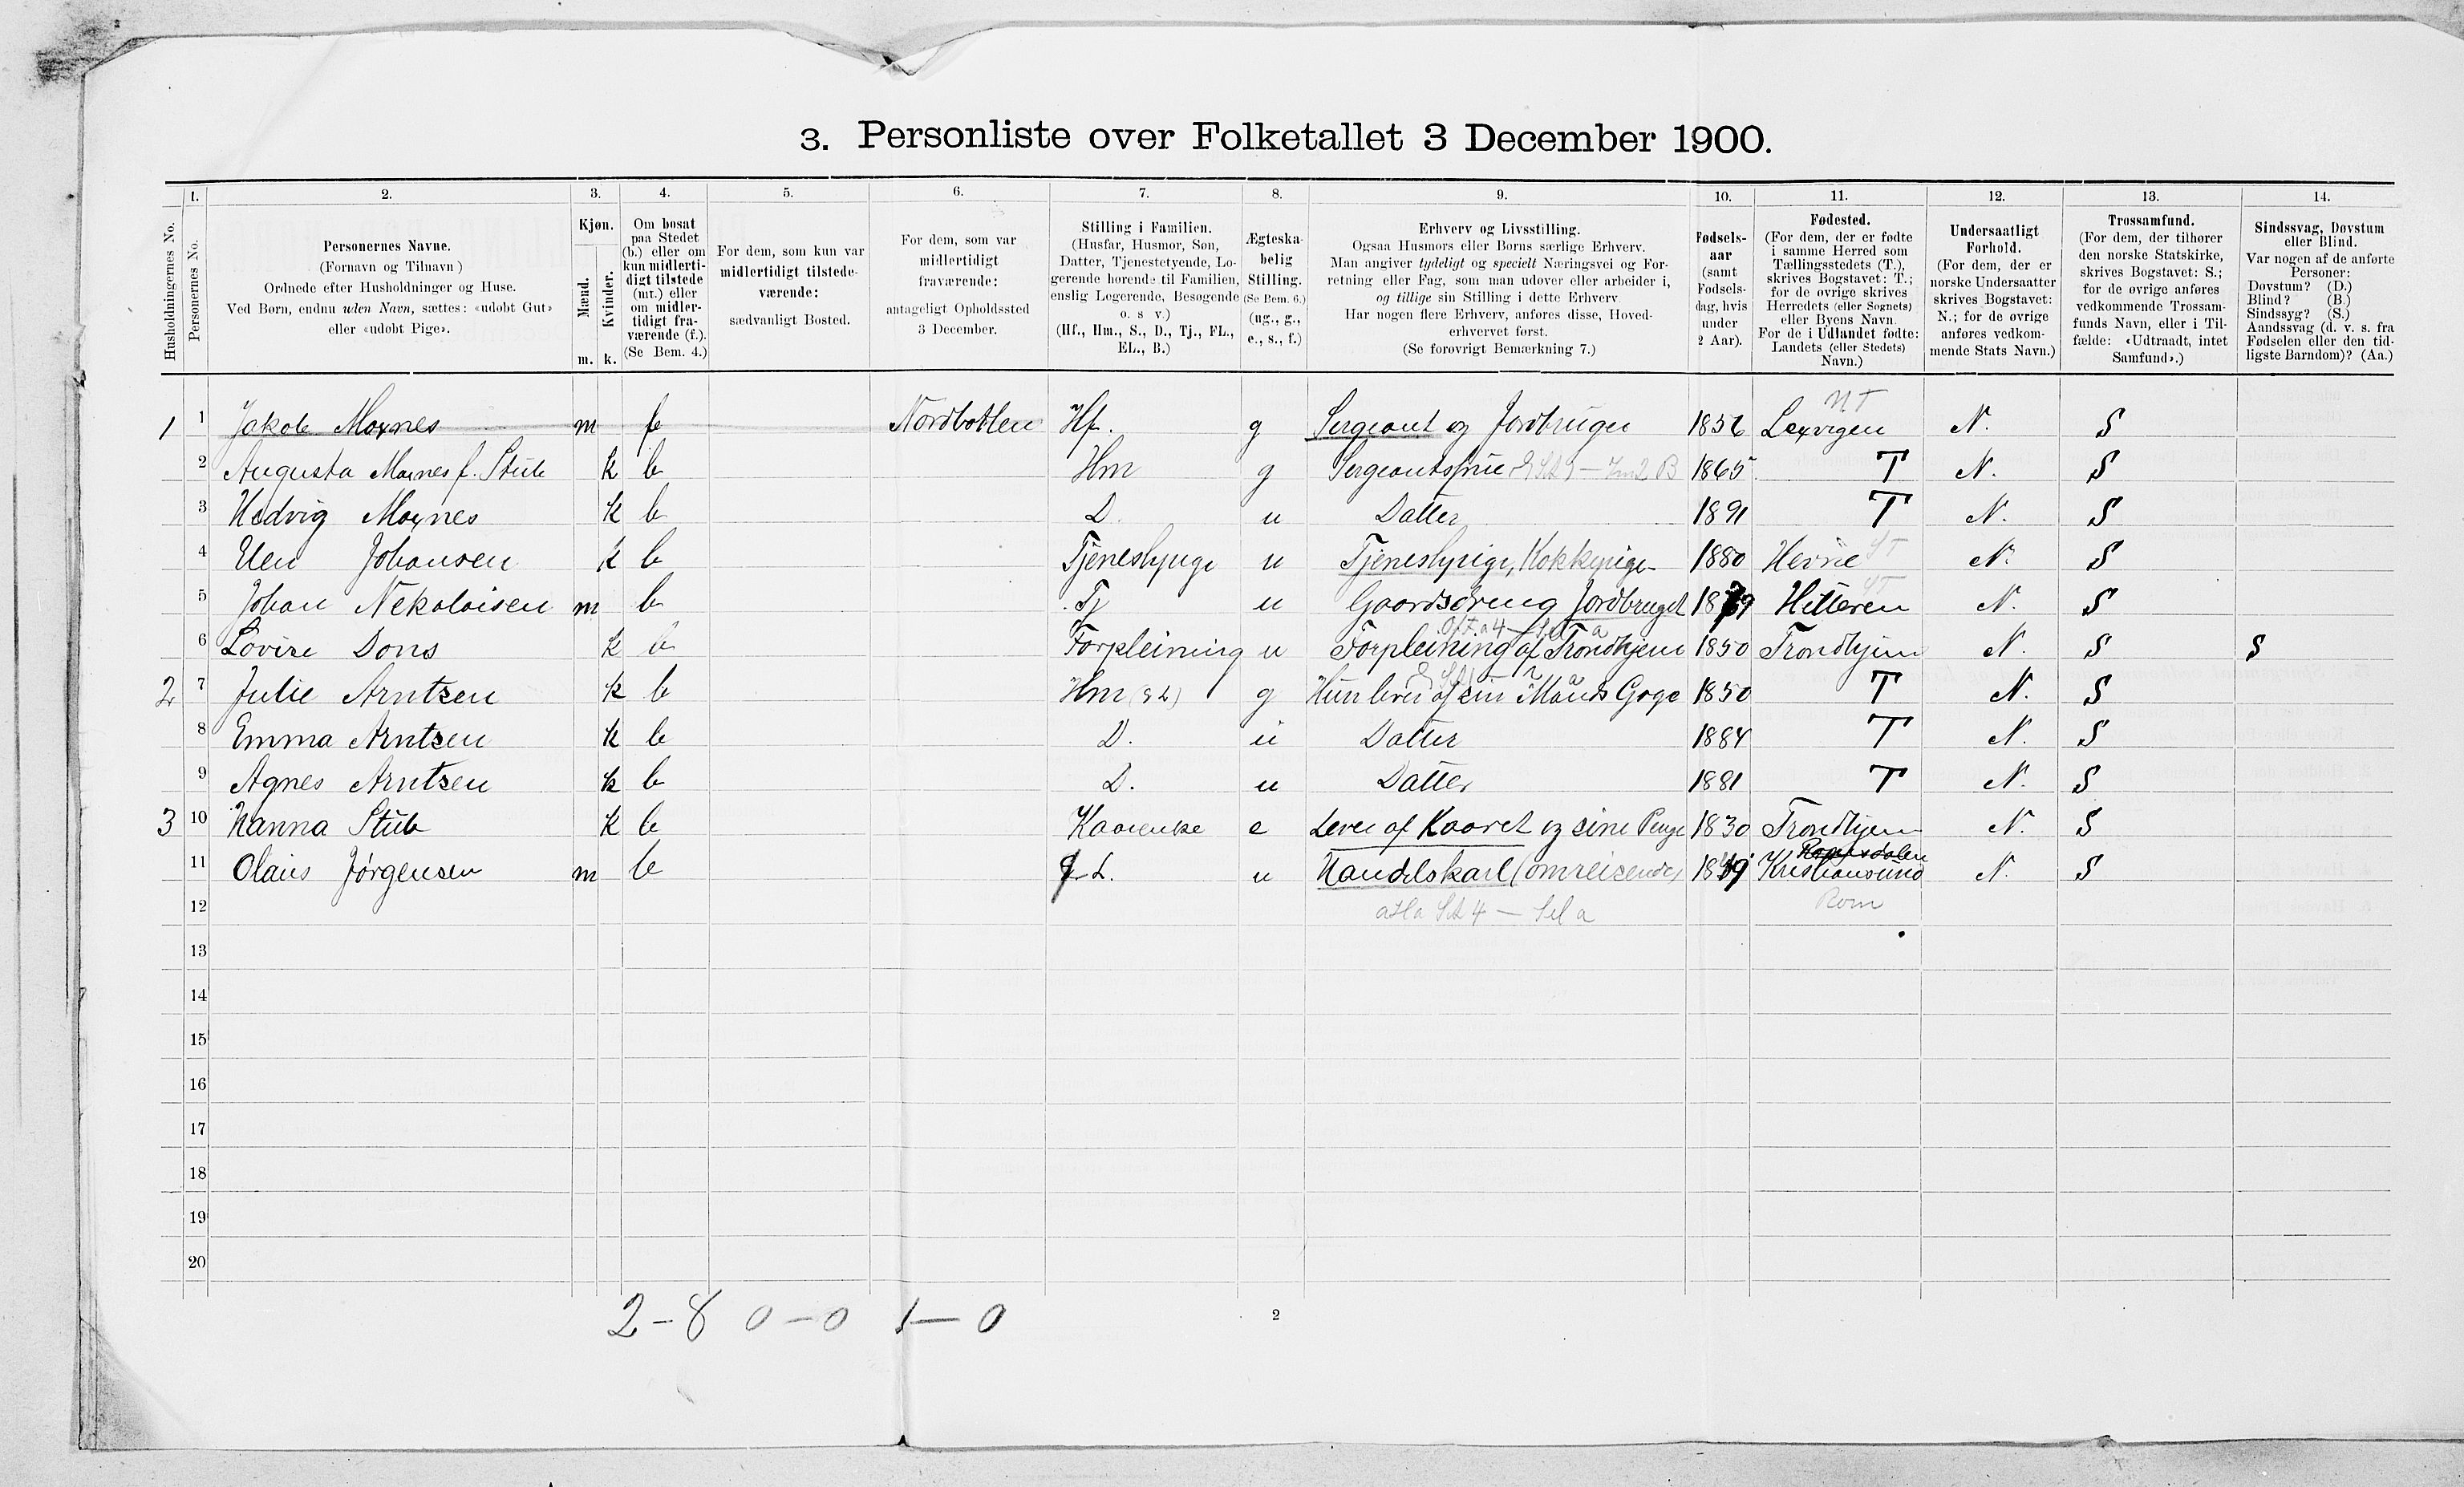 3. Personliste over Folketallet 3 December 1900.
1. 2. 3. 4. 5. 6. 7. 8. 9. 10. 11. 12. 13. 14.
Husholdningernes No.
Personernes No.
Personernes Navne.
(Fornavn og Tilnavn)
Ordnede efter Husholdninger og Huse.
Ved Børn, endnu uden Navn, sættes: «udøbt Gut»
eller «udøbt Pige».
Kjøn.
Mænd.
Kvinder.
m. k.
Om bosat
paa Stedet
(b.) eller om
kun midlerti-
digt tilstede
(mt.) eller
om midler-
tidigt fra-
værende (f.).
(Se Bem. 4.)
For dem, som kun var
midlertidigt tilstede-
værende:
sædvanligt Bosted.
For dem, som var
midlertidigt
fraværende:
antageligt Opholdssted
3 December.
Stilling i Familien.
(Husfar, Husmor, Søn,
Datter, Tjenestetyende, Lo-
gerende hørende til Familien,
enslig Logerende, Besøgende
o. s v.)
(Hf., Hm., S., D., Tj., FL.,
EL., B.)
Ægteska-
belig
Stilling.
(Se Bem. 6.)
(ug., g.,
e., s., f.)
Erhverv og Livsstilling.
Ogsaa Husmors eller Børns særlige Erhverv.
Man angiver tydeligt og specielt Næringsvei og For-
retning eller Fag, som man udøver eller arbeider i,
og tillige sin Stilling i dette Erhverv.
Har nogen flere Erhverv, anføres disse, Hoved-
erhvervet først.
(Se forøvrigt Bemærkning 7.)
Fødsels-
aar
(samt
Fødsels-
dag, hvis
under
2 Aar).
Fødested.
(For dem, der er fødte
i samme Herred som
Tællingsstedets (T.),
skrives Bogstavet: T.;
for de øvrige skrives
Herredets (eller Sognets)
eller Byens Navn.
For de i Udlandet fødte:
Landets (eller Stedets)
Navn.)
Undersaatligt
Forhold.
(For dem, der er
norske Undersaatter
skrives Bogstavet:
N.; for de øvrige
anføres vedkom-
mende Stats Navn.)
Trossamfund.
(For dem, der tilhører
den norske Statskirke,
skrives Bogstavet: S.;
for de øvrige anføres
vedkommende Trossam-
funds Navn, eller i Til-
fælde: «Udtraadt, intet
Samfund».)
Sindssvag, Døvstum
eller Blind.
Var nogen af de anførte
Personer:
Døvstum? (D.)
Blind? (B.)
Sindssyg? (S.)
Aandssvag (d. v. s. fra
Fødselen eller den tid-
ligste Barndom)? (Aa.)
NT
1 1 Jakob Moxnes m f Nordbotlen Hf. g Sergeant og Jordbruger 1856 Lexvigen N. S
2 Augusta Moxnes f. Stub k b Hm g Sergeantsfrue 1865 T N. S
3 Hedvig Moxnes k b D. u Datter 1891 T N. S
4 Elen Johansen k b Tjenestpige u Tjenestpige, Kokkepige 1880 Hevne ST N. S
5 Johan Nekolaisen m b Tj u Gaardsdreng Jordbruget 1879 Hitteren ST N. S
6 Lovise Dons k b Forpleining u Forpleining af Trondhjem 1850 Trondhjem N. S S
2 7 Julie Arntsen k b Hm g Hun lever af sin Mands Gage 1850 T N. S
8 Emma Arntsen k b D. u Datter 1884 T N. S
9 Agnes Arntsen k b D. u Datter 1881 T N. S
3 10 Hanna Stub k b Kaarenke e Lever af Kaaret og sine Penge 1830 Trondhjem N. S
Romsdalen
11 Olaus Jørgensen m b L. u Handelskarl (omreisende) 1849 Kristiansund N. S
12 Rom
13
14
15
16
17
18
19
20
2-8 0-0 1-0
2